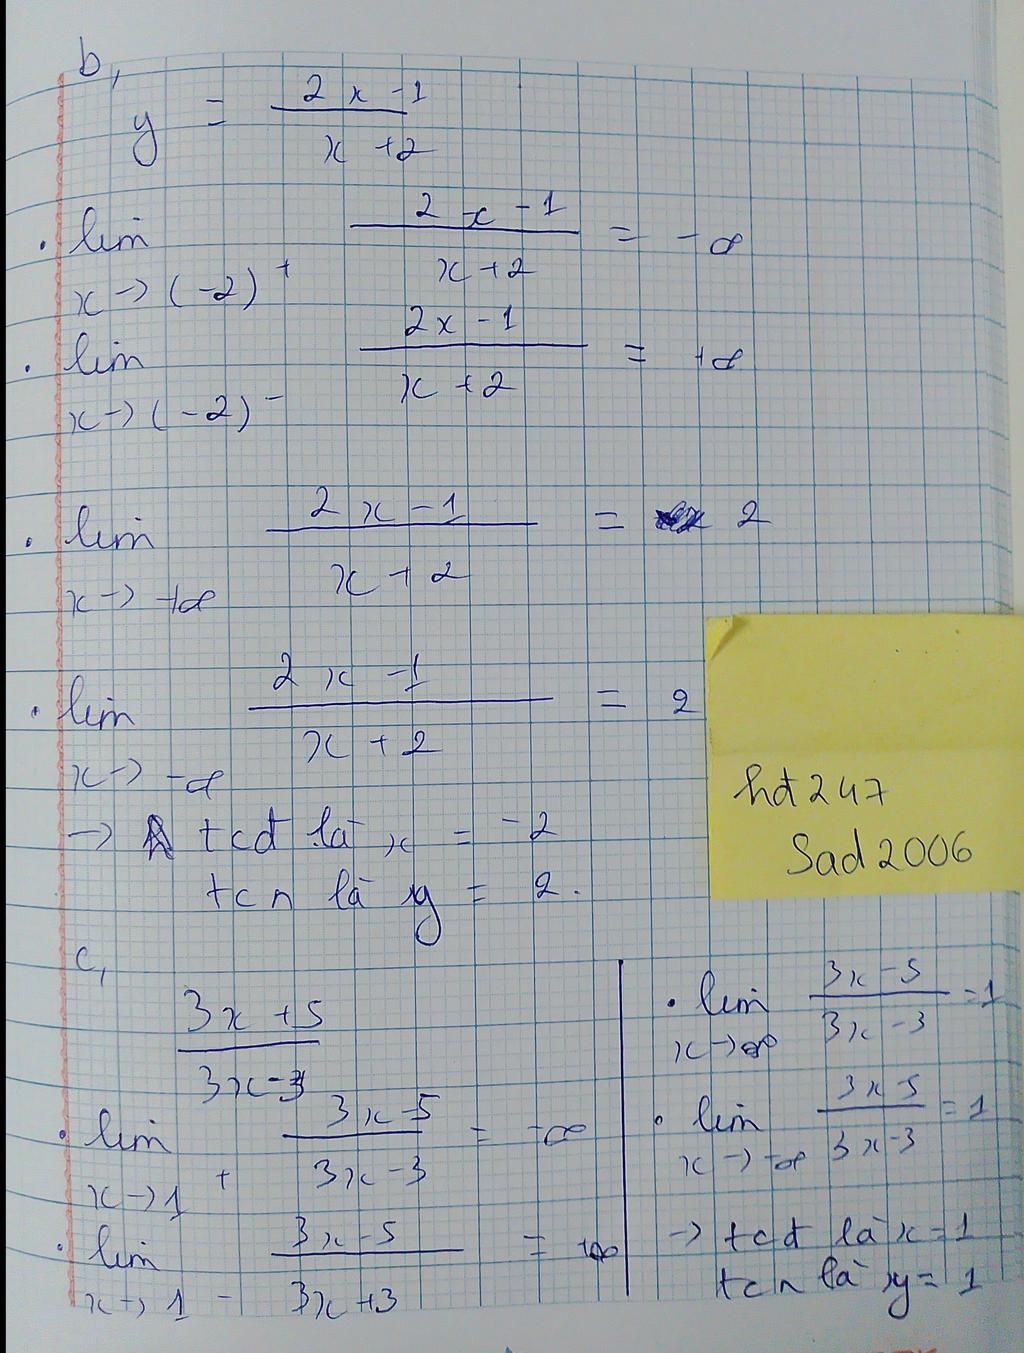 b,
y = 2x - 1 / x + 2
• lim x → (-2)⁺ 2x - 1 / x + 2 = -∞
• lim x → (-2)⁻ 2x - 1 / x + 2 = +∞
• lim x → +∞ 2x - 1 / x + 2 = 2
• lim x → -∞ 2x - 1 / x + 2 = 2
→ tcđ là x = -2
tcn là y = 2.
hđ247
Sad2006
c,
3x + 5 / 3x - 3
• lim x → 1⁺ 3x - 5 / 3x - 3 = -∞
• lim x → 1⁻ 3x - 5 / 3x + 3 = +∞
• lim x → ∞ 3x - 5 / 3x - 3 = 1
• lim x → -∞ 3x - 5 / 3x - 3 = 1
→ tcđ là x = 1
tcn là y = 1